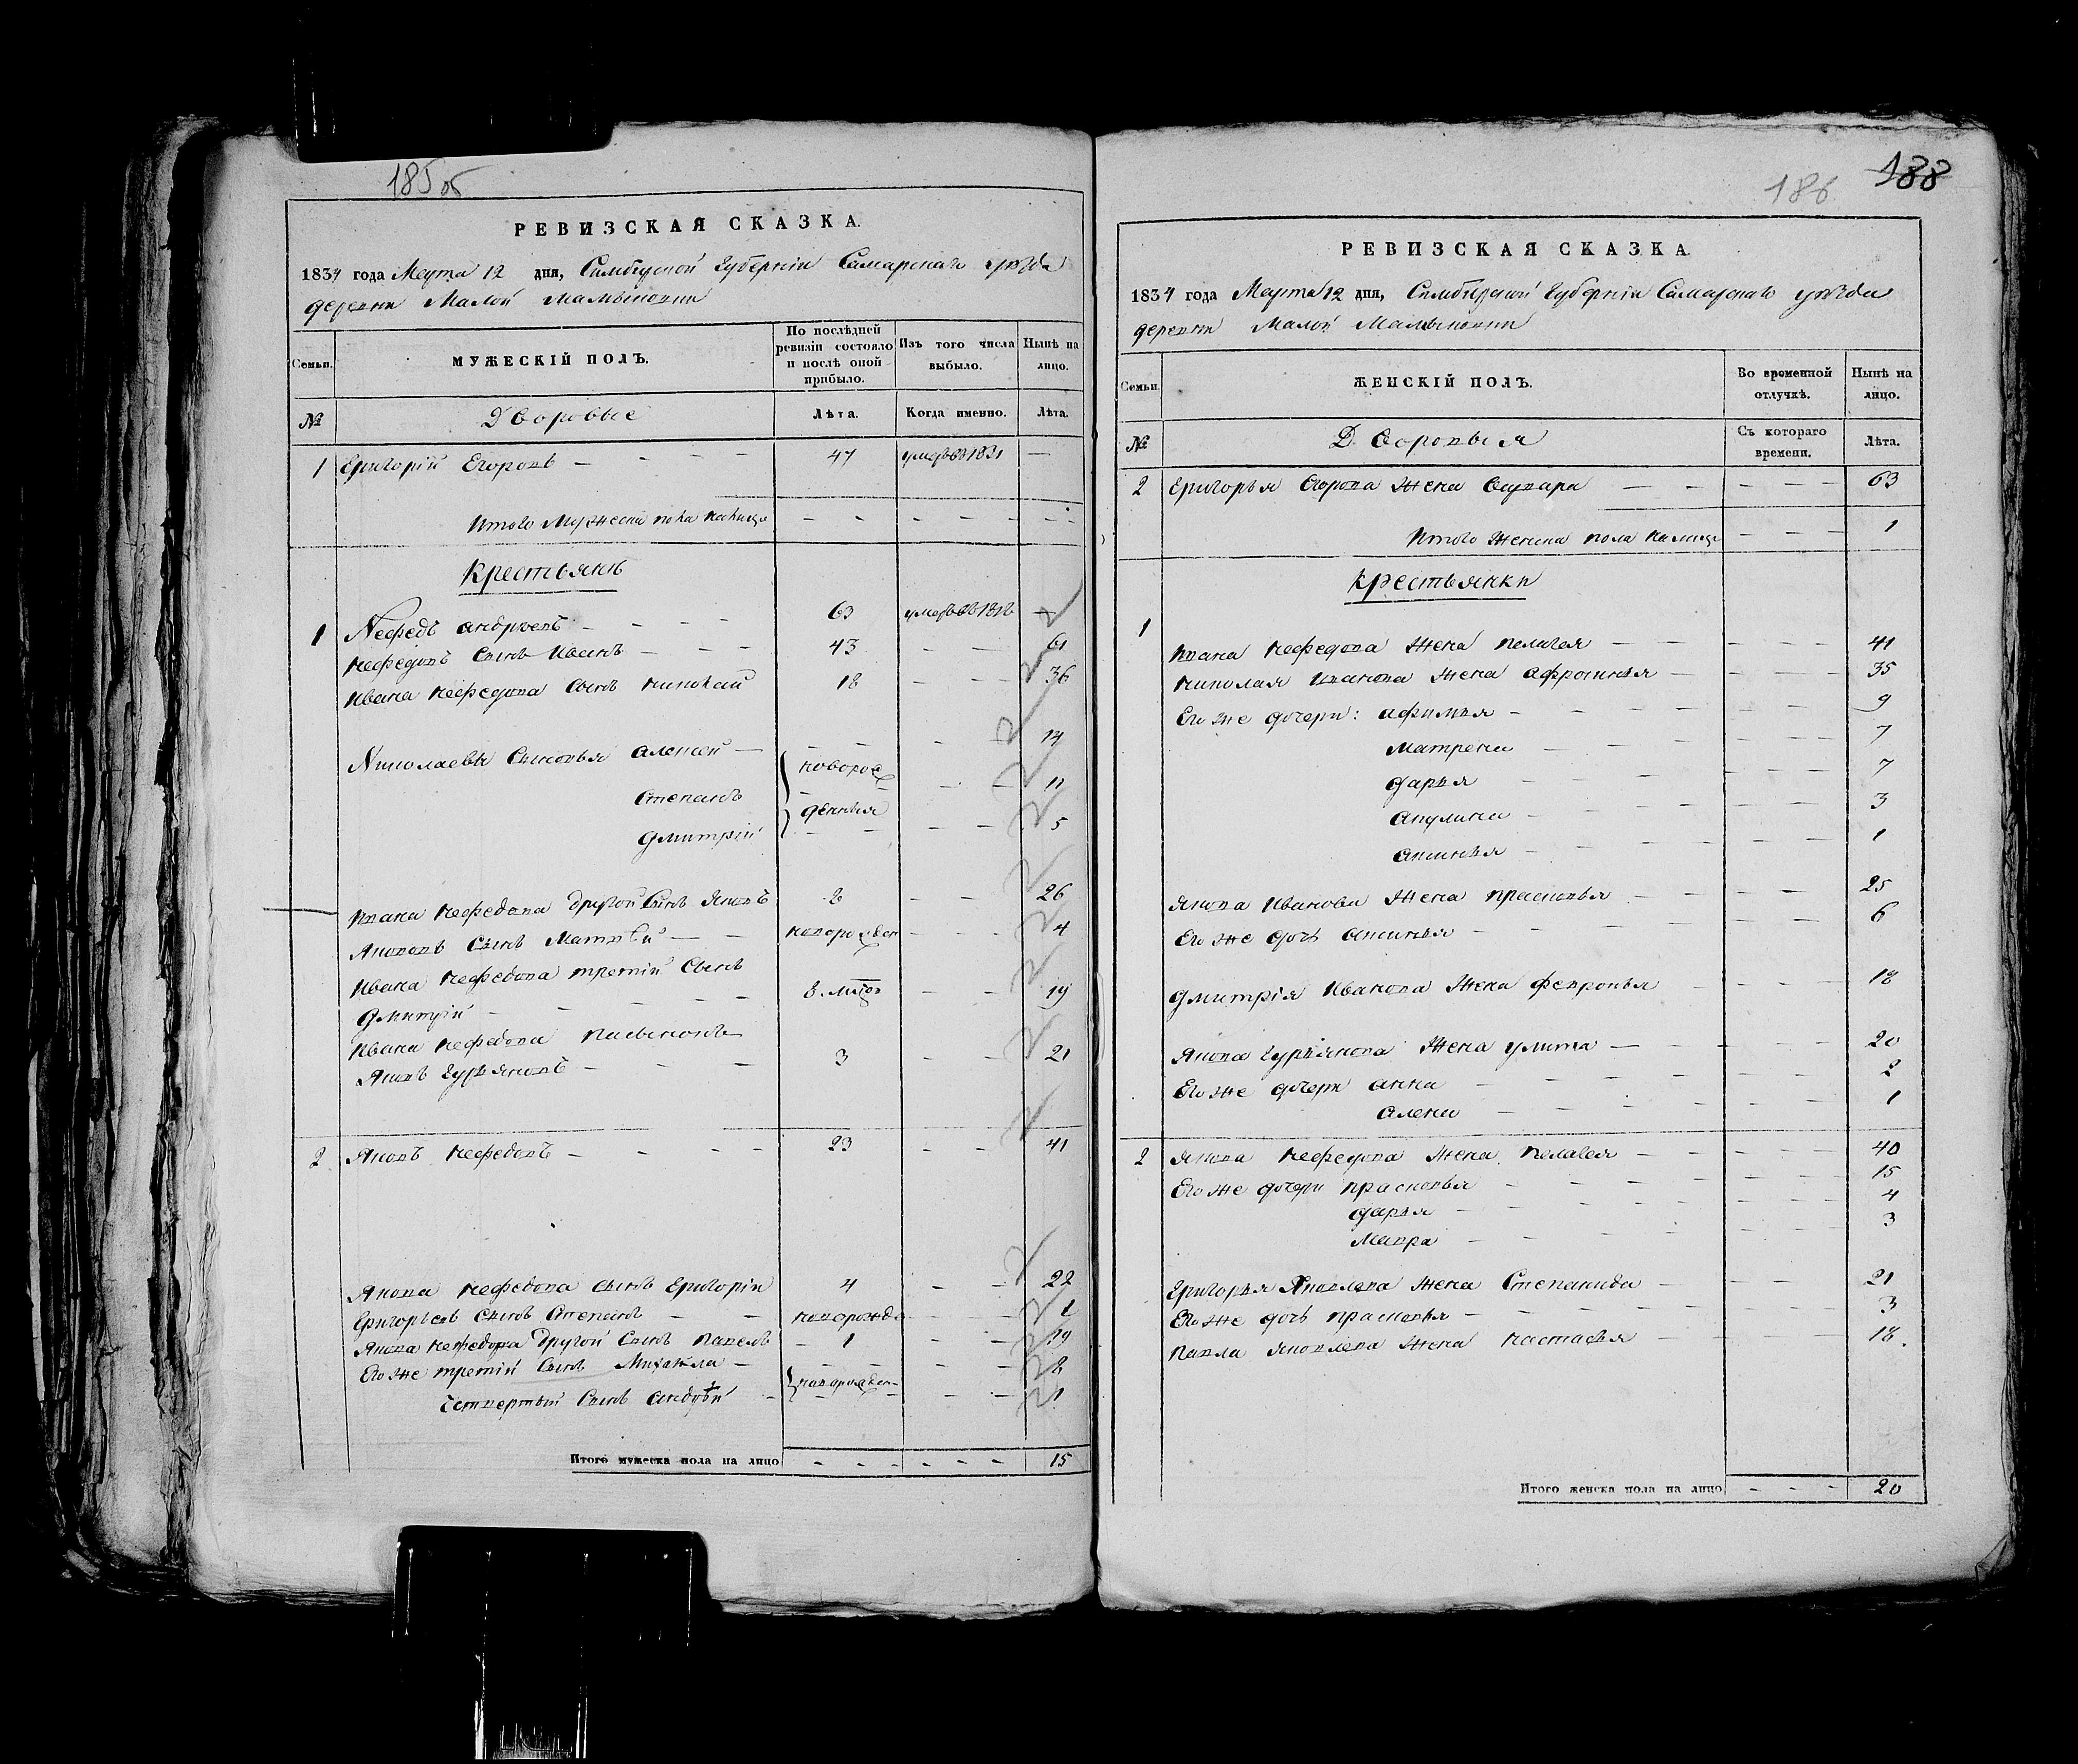 185 об
РЕВИЗСКАЯ СКАЗКА.
1834 года Марта 12 дня, Симбирской губернiи Самарскаго уѣзда
деревни Малой Малышовки
Семьи.
МУЖЕСКIЙ ПОЛЪ.
По послѣдней ревизiи состояло и послѣ оной прибыло.
Изъ того числа выбыло.
Нынѣ на лицо.
№
Дворовые
Лѣта.
Когда именно.
Лѣта.
1 Григорiй Егоровъ — 47 умеръ въ 1831 —
Итого Мужеска пола налицо
Крестьянѣ
1 Нефедъ Андрѣевъ — 63 —
Нефедовъ Сынъ Иванъ — 43 — 61
Ивана Нефедова Сынъ Николай 18 — 36
Николаевы Сыновья Алексей — 14
Степанъ новорожденныя 11
Дмитрiй 5
Ивана Нефедова другой Сынъ Яковъ 8 — 26
Яковъ Сынъ Матвѣй — новорожден 4
Ивана Нефедова третiй Сынъ
Дмитрiй — 19
Ивана Нефедова пасынокъ
Яковъ Гурьяновъ — 3 — 21
2 Яковъ Нефедовъ — 23 — 41
Якова Нефедова сынъ Григорiй 4 — 22
Григорьевъ Сынъ Степанъ — новорожде 1
Якова Нефедова другой Сынъ Павелъ — 1 — 19
Его же третiй Сынъ Михайла — новорожден 8
Четвертый Сынъ Андрѣй — 1
Итого мужеска пола на лицо — 15
186 188
РЕВИЗСКАЯ СКАЗКА.
1834 года Марта 12 дня, Симбирской губернiи Самарскаго уѣзда
деревни Малой Малышовки
Семьи.
ЖЕНСКIЙ ПОЛЪ.
Во временной отлучкѣ.
Нынѣ на лицо.
№
Дворовыя
Съ котораго времени.
Лѣта.
2 Григорья Егорова жена Варвара — 63
Итого женска пола налицо — 1
Крестьянки
1
Ивана Нефедова жена Пелагея — 41
Николая Иванова жена Афросинья — 35
Его же дочери: Афимья — 9
Матрена — 7
Дарья — 7
Акулина — 3
Аксинья — 1
Якова Иванова жена Прасковья — 25
Его же дочь Аксинья — 6
Дмитрiя Иванова жена Февронья — 18
Якова Гурьянова жена Улита — 20
Его же дочери Анна — 2
Алена — 1
2 Якова Нефедова жена Пелагея — 40
Его же дочери Прасковья — 15
Дарья — 4
Мавра — 3
Григорья Яковлева жена Степанида — 21
Его же дочь Прасковья — 3
Павла Яковлева жена Настасья — 18.
Итого женска пола на лицо — 20